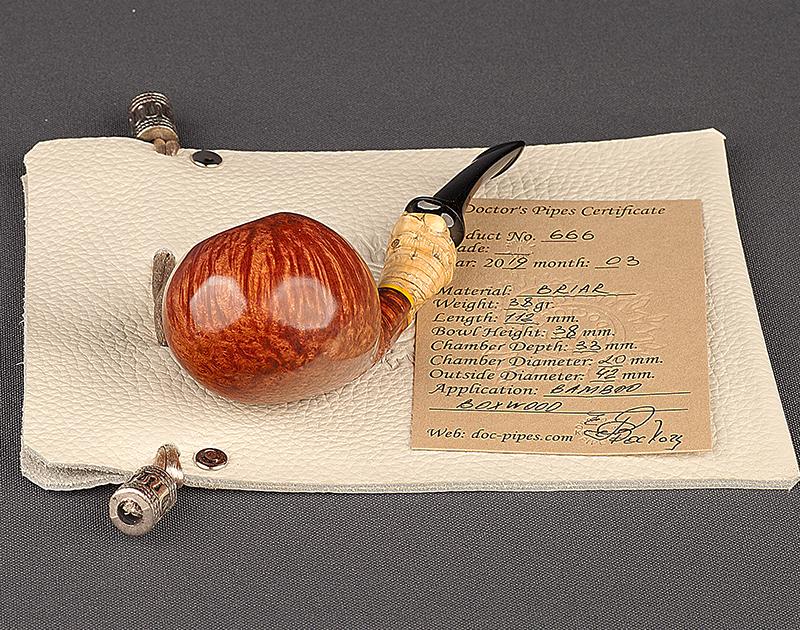 Doctor's Pipes Certificate
duct No. 666
ade:
ar: 2019 month: 03
Material: BRIAR
Weight: 38 gr.
Length: 112 mm.
Bowl Height: 38 mm.
Chamber Depth: 33 mm.
Chamber Diameter: 20 mm.
Outside Diameter: 42 mm.
Application: BAMBOO
BOXWOOD
Web: doc-pipes.com